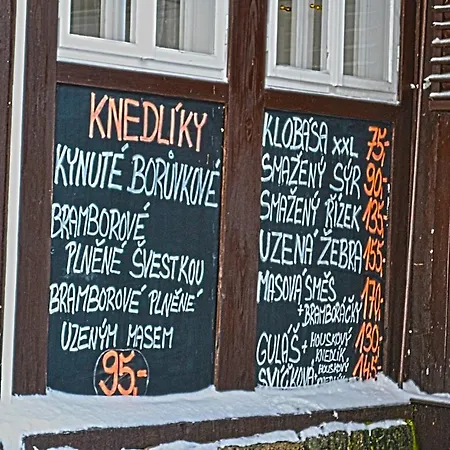 KNEDLÍKY
KYNUTÉ BORŮVKOVÉ
BRAMBOROVÉ
PLNĚNÉ ŠVESTKOU
BRAMBOROVÉ PLNĚNÉ
UZENÝM MASEM
95,-
KLOBÁSA XXL 75,-
SMAŽENÝ SÝR 90,-
SMAŽENÝ ŘÍZEK 135,-
UZENÁ ŽEBRA 155,-
MASOVÁ SMĚS
+ BRAMBORÁČKY 170,-
GULÁŠ + HOUSKOVÝ
KNEDLÍK 130,-
SVÍČKOVÁ HOUSKOVÝ
KNEDLÍK 145,-